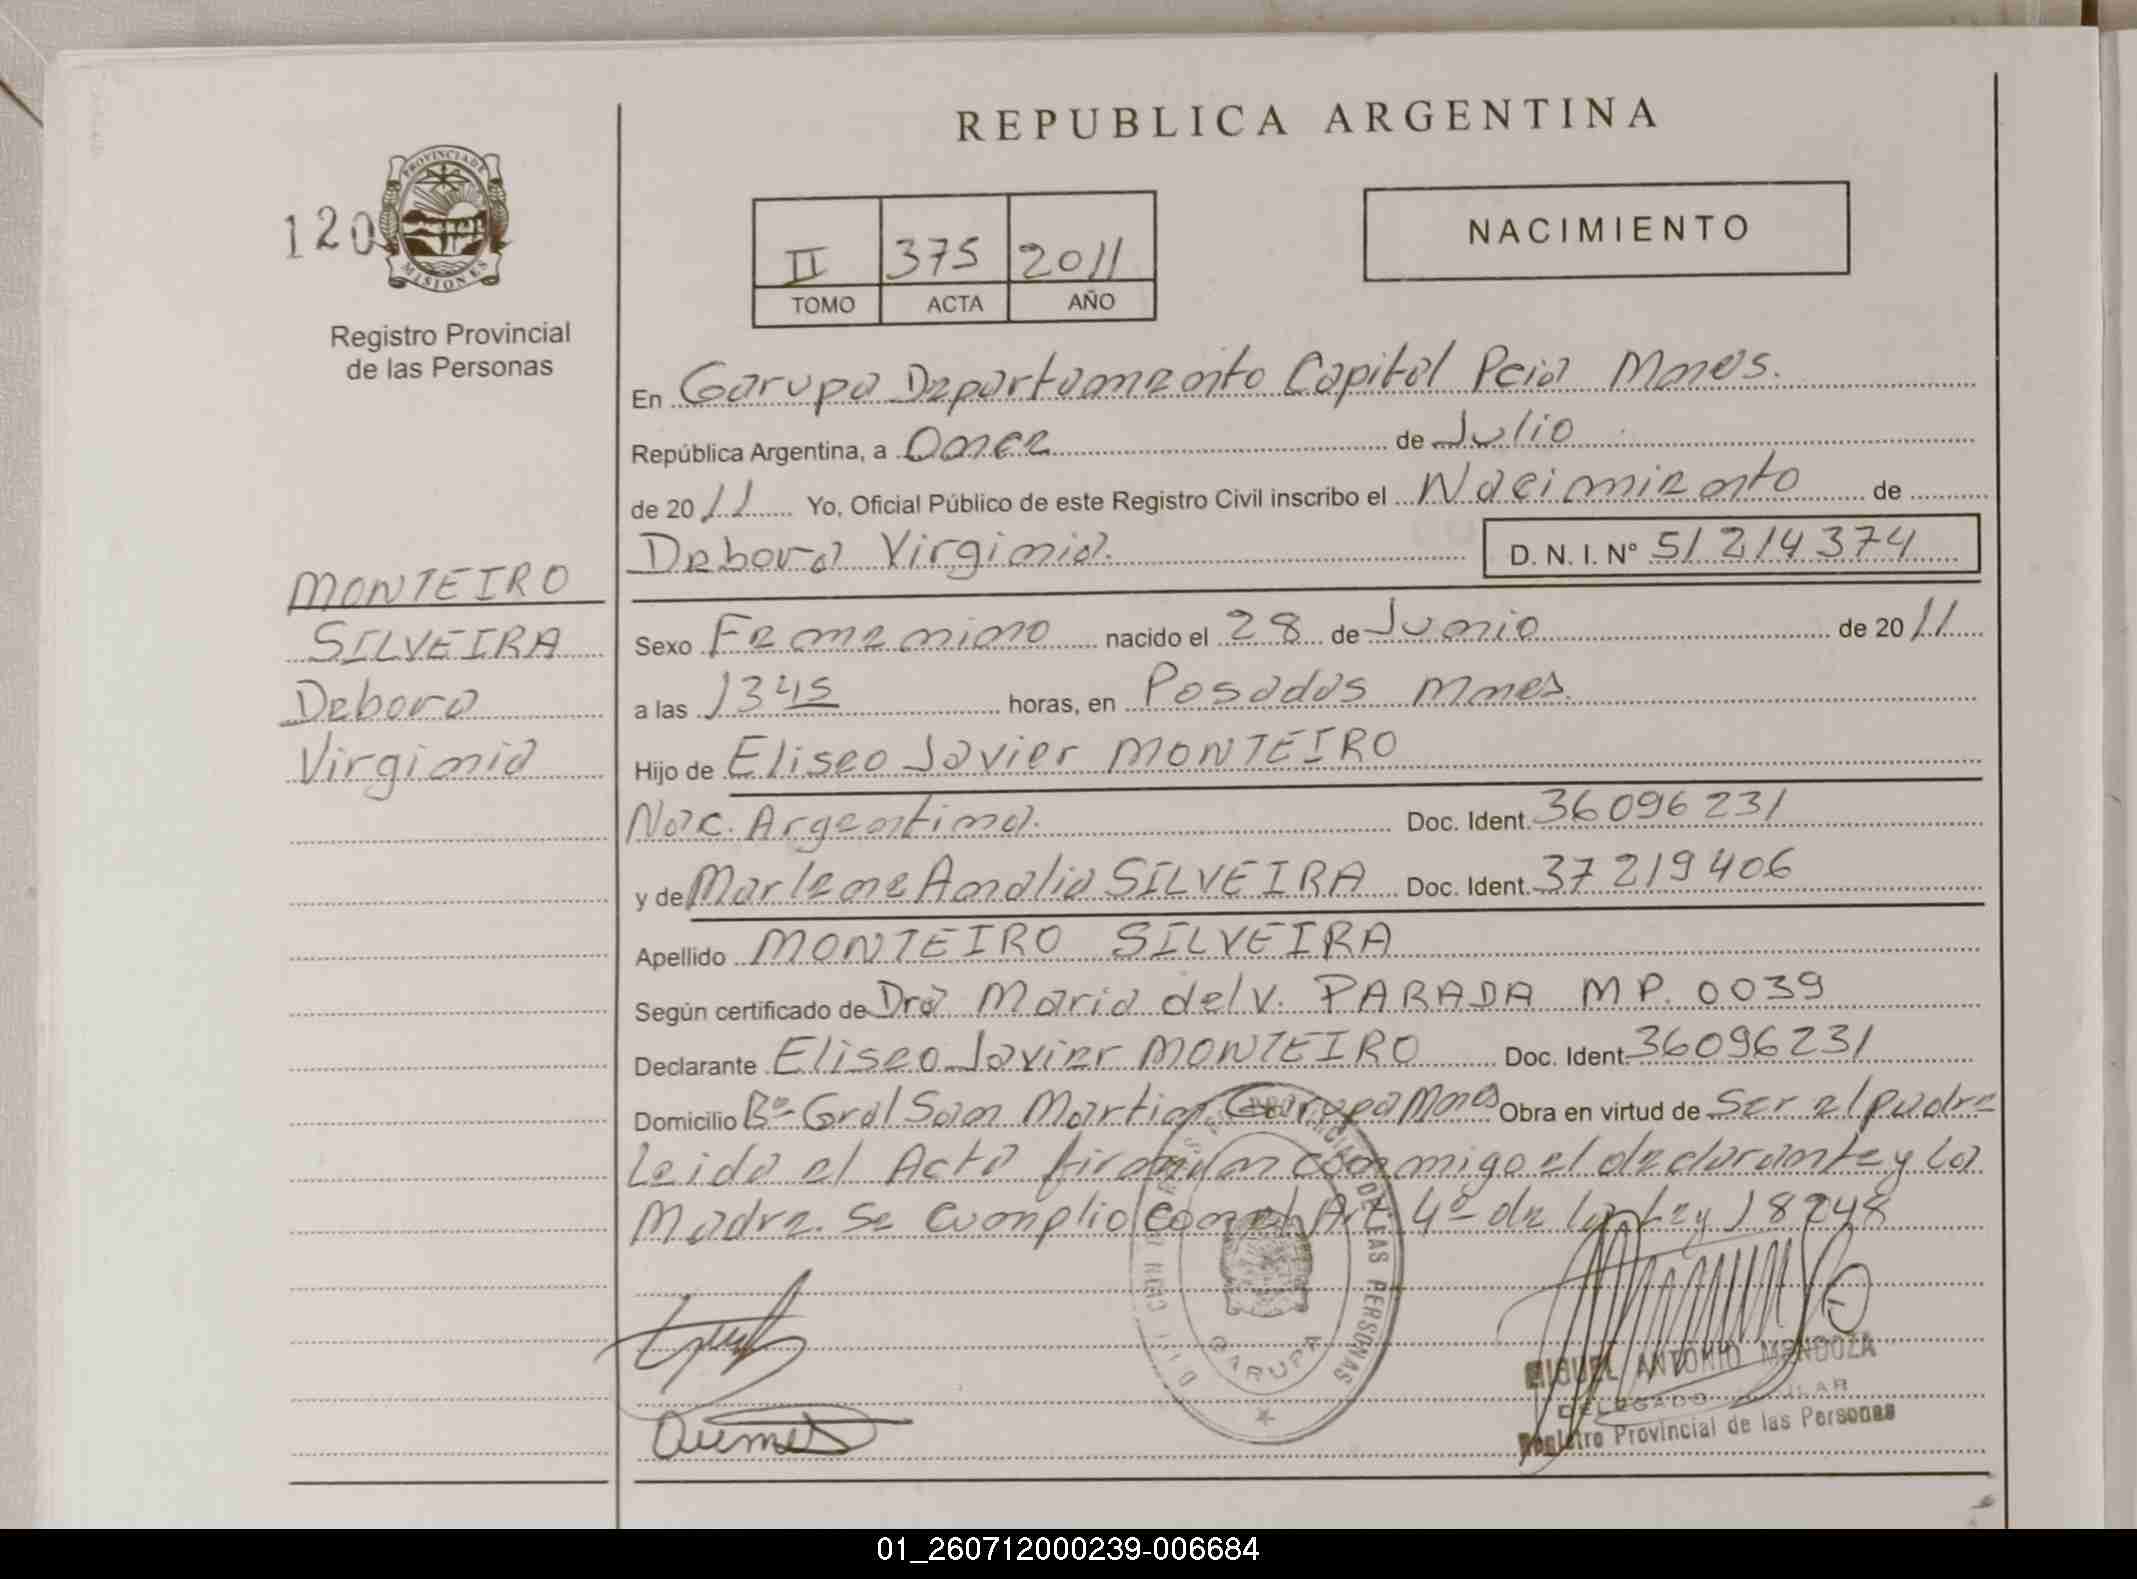 REPUBLICA ARGENTINA
120
PROVINCIA DE MISIONES
Registro Provincial
de las Personas
II 375 2011
TOMO ACTA AÑO
NACIMIENTO
En Garupa Departamento Capital Pcia Mnes.
República Argentina, a Once de Julio
de 2011 Yo, Oficial Público de este Registro Civil inscribo el Nacimiento de
Debora Virginia. D. N. I. N° 51214374
MONTEIRO
SILVEIRA
Debora
Virginia
Sexo Femenino nacido el 28 de Junio de 2011
a las 13 45 horas, en Posadas Mnes.
Hijo de Eliseo Javier MONTEIRO
Nac. Argentina. Doc. Ident. 36096231
y de Marlene Analia SILVEIRA Doc. Ident. 37219406
Apellido MONTEIRO SILVEIRA
Según certificado de Dra Maria del V. PARADA MP. 0039
Declarante Eliseo Javier MONTEIRO Doc. Ident. 36096231
Domicilio Bº Gral San Martin Garupa Mnes Obra en virtud de Ser el padre
Leida el Acta firman conmigo el declarante y la
Madre. Se cumplio con el Art. 4º de la Ley 18248
PROVINCIAL DE LAS PERSONAS
GARUPA
MIGUEL ANTONIO MENDOZA
DELEGADO
Registro Provincial de las Personas
01_260712000239-006684